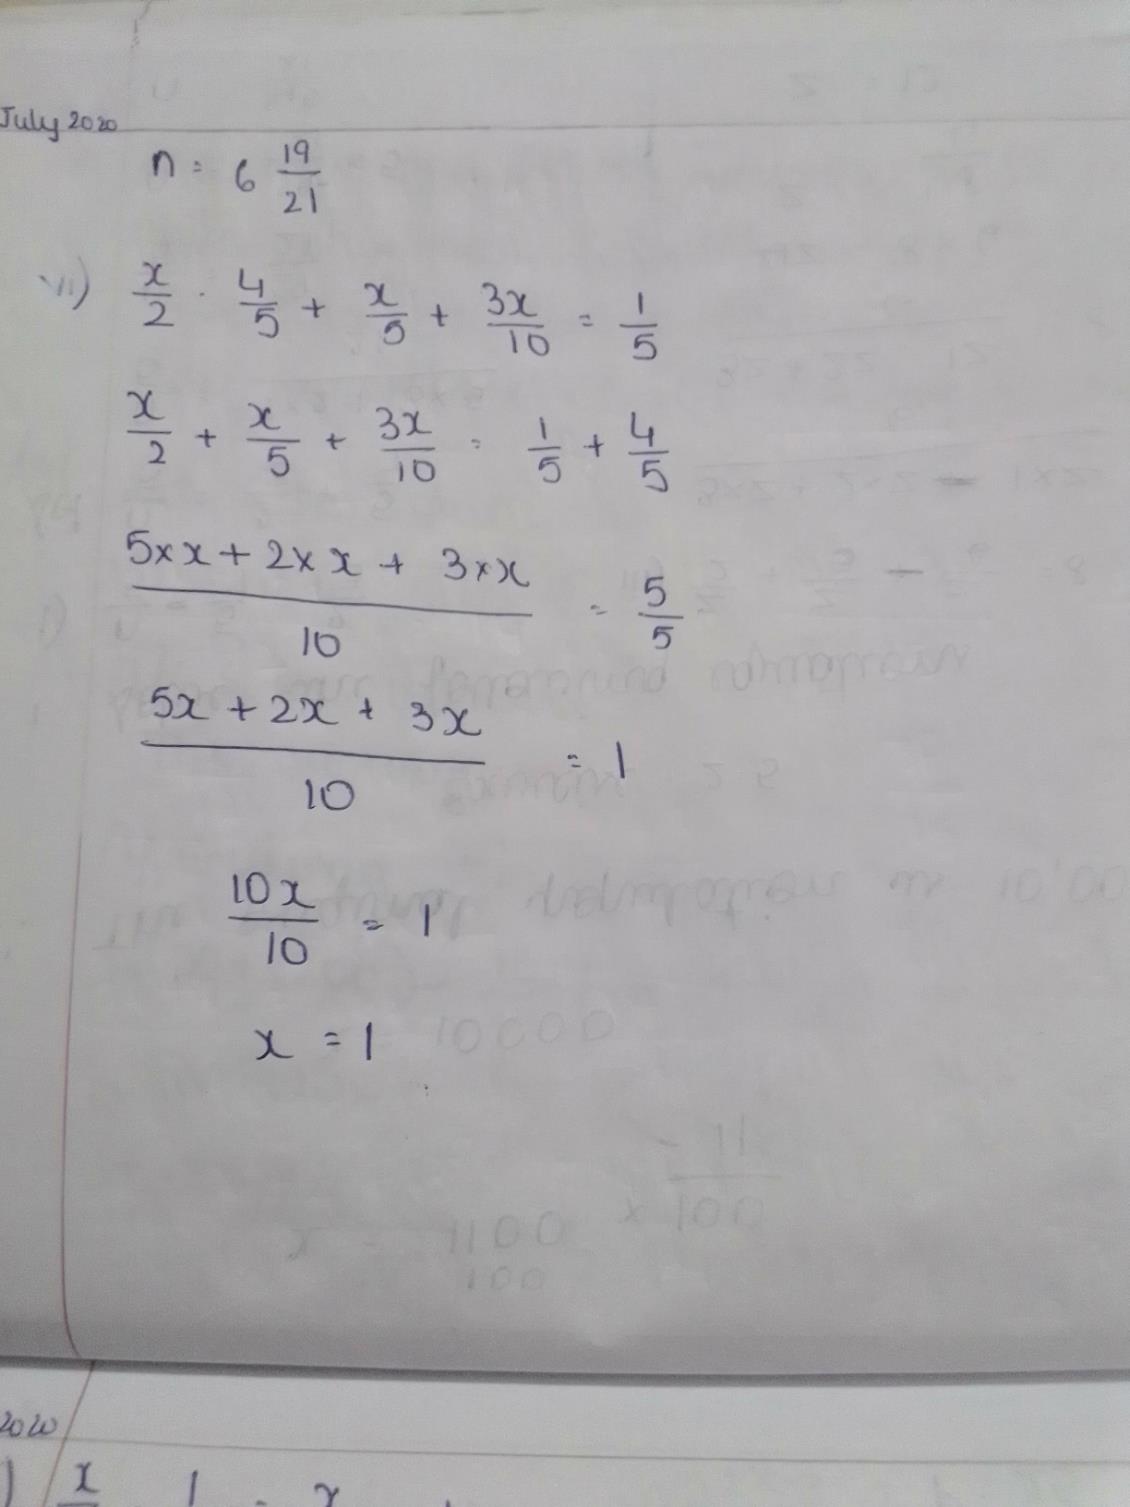 July 2020
n = 6 19/21
vii) x/2 - 4/5 + x/5 + 3x/10 = 1/5
x/2 + x/5 + 3x/10 = 1/5 + 4/5
5×x + 2×x + 3×x / 10 = 5/5
5x + 2x + 3x / 10 = 1
10x/10 = 1
x = 1
2020